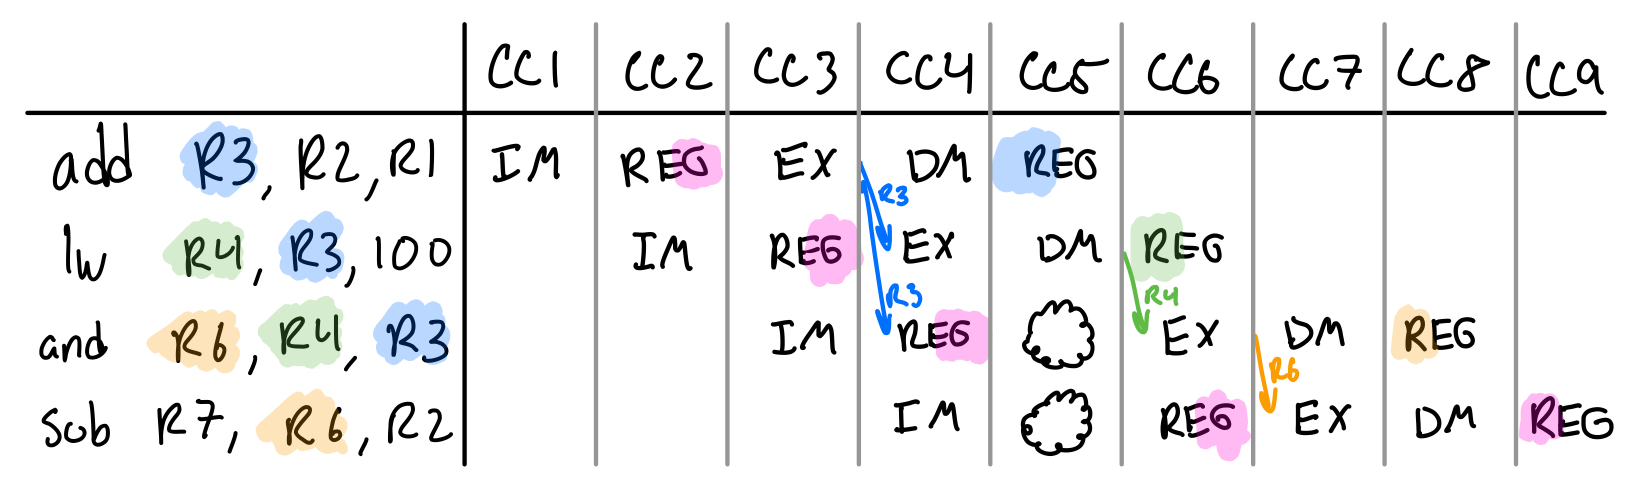 CC1 CC2 CC3 CC4 CC5 CC6 CC7 CC8 CC9
add R3, R2, R1 IM REG EX DM REG
R3
lw R4, R3, 100 IM REG EX DM REG
R3 R4
and R6, R4, R3 IM REG EX DM REG
R6
sub R7, R6, R2 IM REG EX DM REG